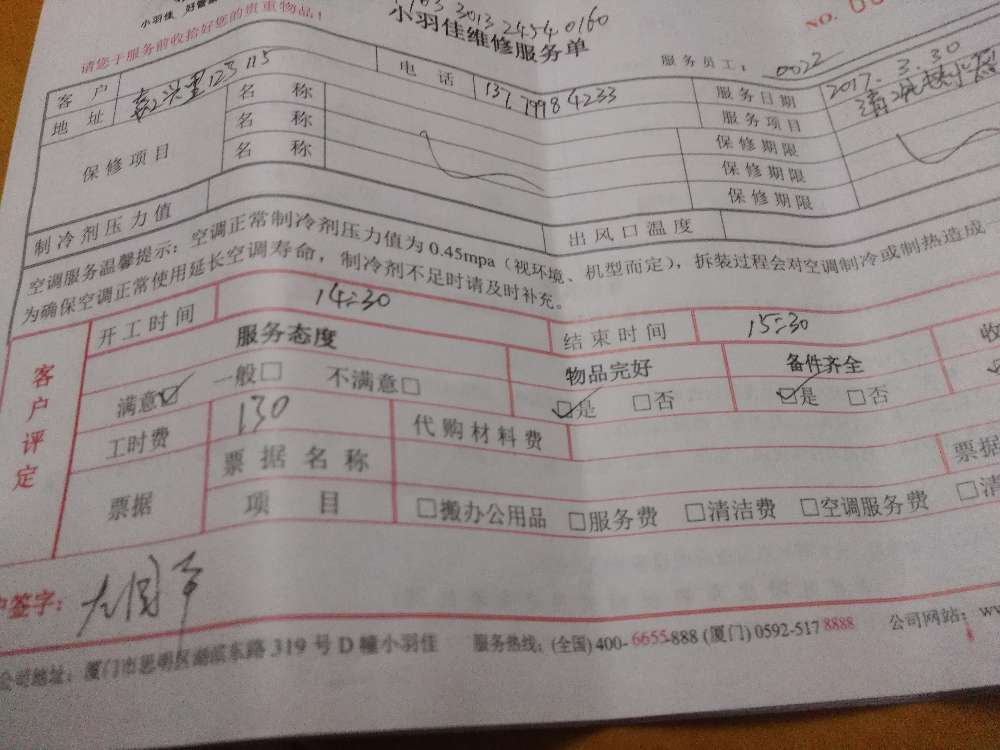 小羽佳
请您于服务前收拾好您的贵重物品!
2013 2454 0160
小羽佳维修服务单
NO.
服务员工: 0022
客户 电话 服务日期 2017.3.30
地址 嘉兴里123 115 名称 服务项目
保修项目 名称 保修期限
名称 保修期限
保修期限
制冷剂压力值 出风口温度
空调服务温馨提示:空调正常制冷剂压力值为0.45mpa(视环境、机型而定),拆装过程会对空调制冷或制热造成一
为确保空调正常使用延长空调寿命,制冷剂不足时请及时补充。
客户评定
开工时间 14:30 结束时间 15:30
服务态度 物品完好 备件齐全 收
满意☑ 一般□ 不满意□ ☑是 □否 ☑是 □否
工时费 130 代购材料费
票据 票据名称 票据
项目 □搬办公用品 □服务费 □清洁费 □空调服务费 □清
户签字:
公司地址:厦门市思明区湖滨东路319号D幢小羽佳 服务热线:(全国)400-6655-888(厦门)0592-5178888 公司网站:ww